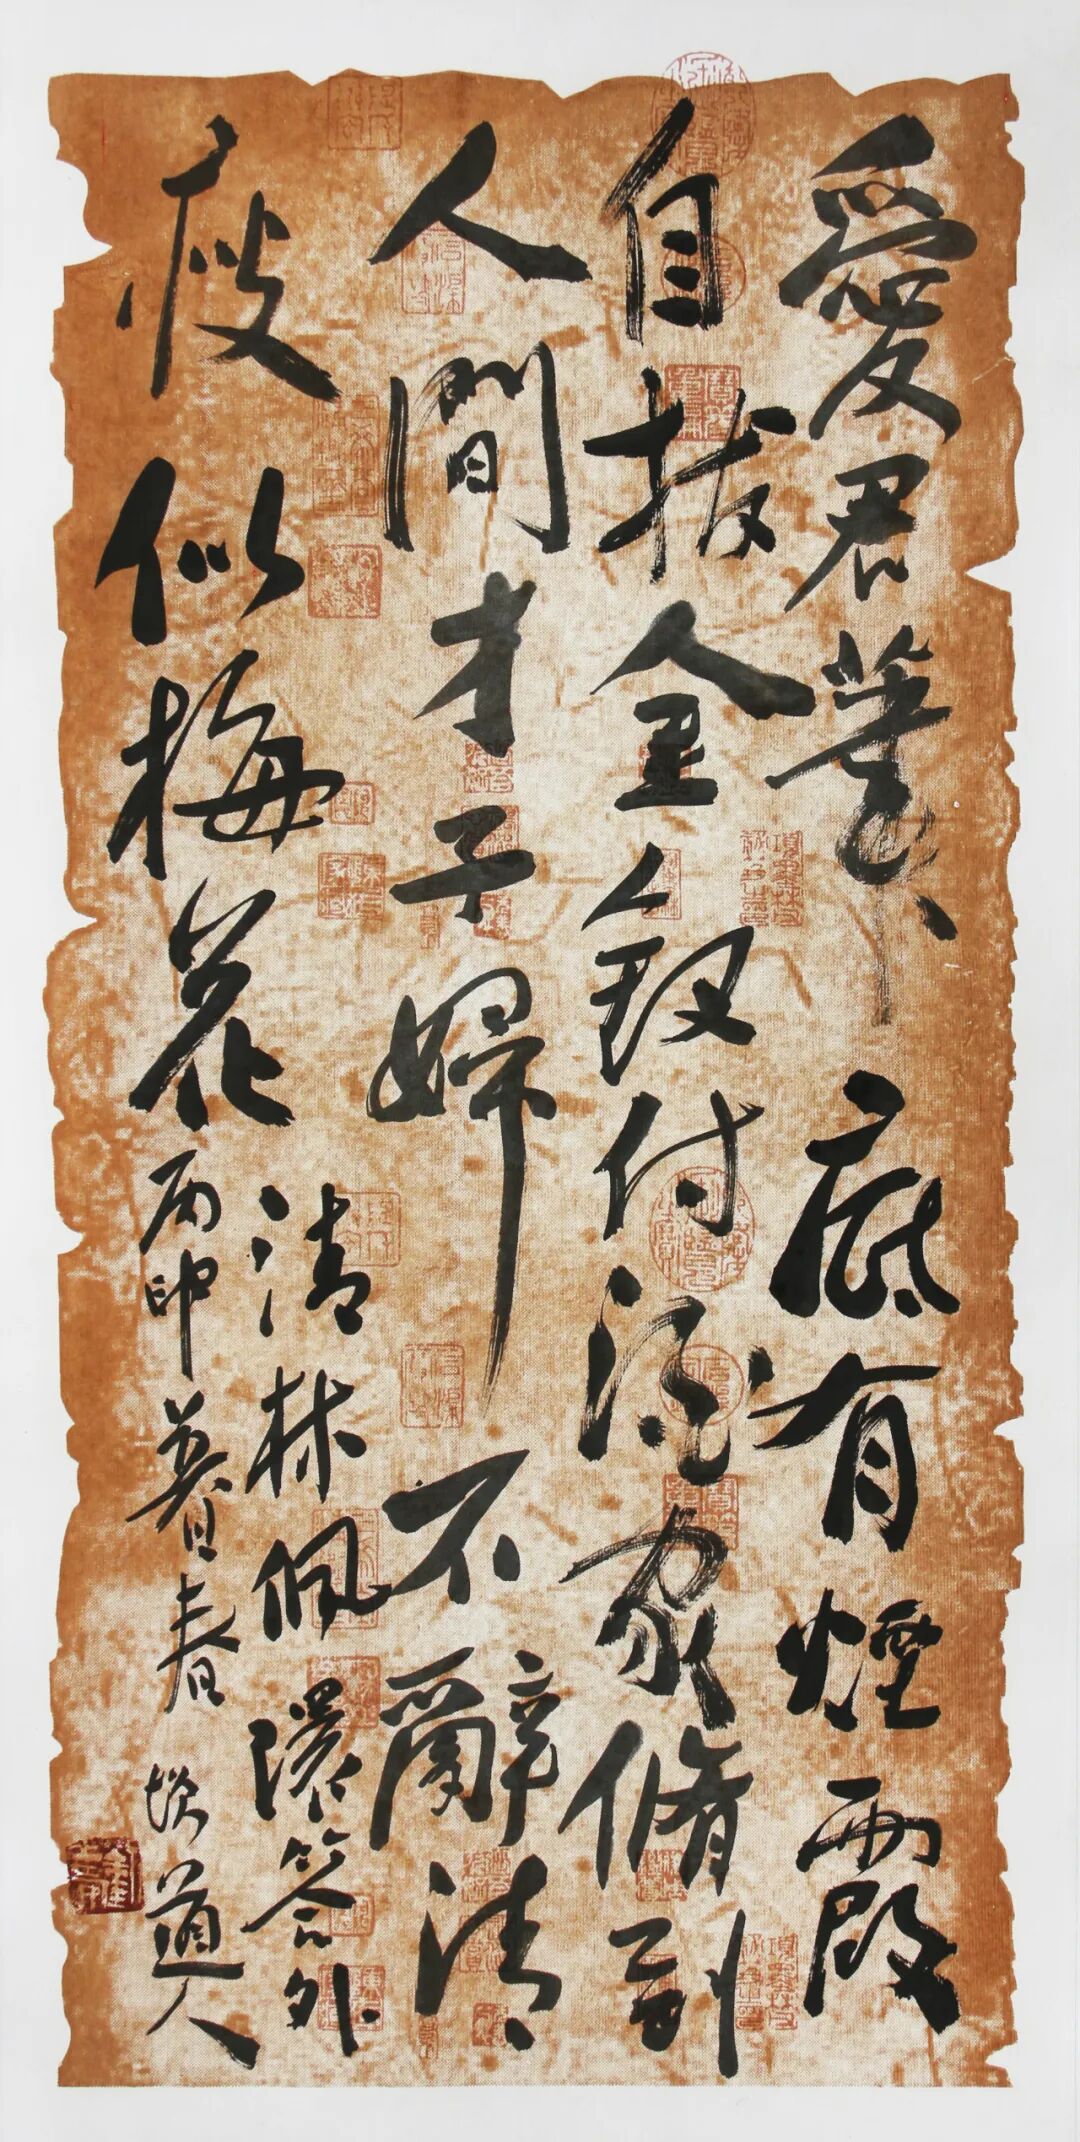 愛君筆底有煙霞
自拔金釵付酒家修到
人間才子婦不辭清
瘦似梅花
清林佩環答外
丙申暮春
道人